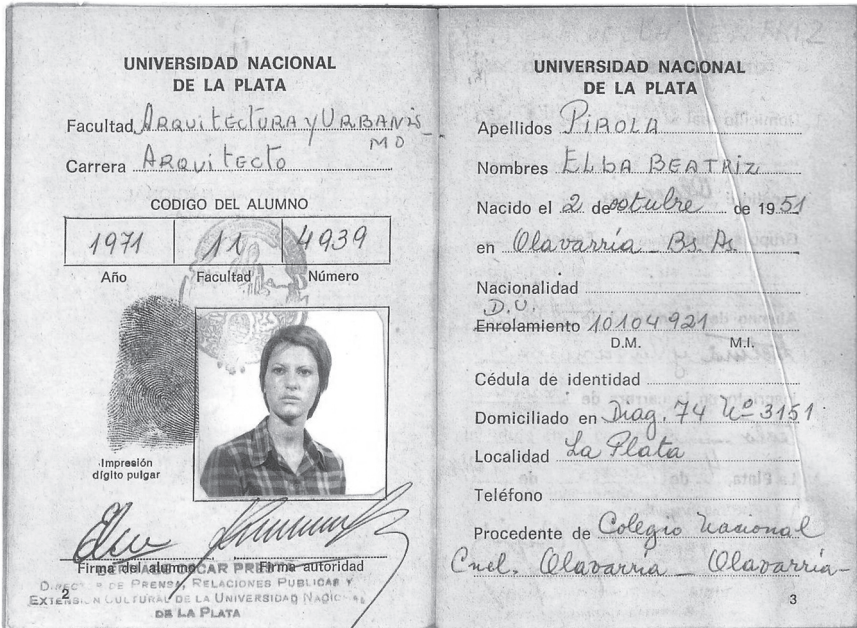 UNIVERSIDAD NACIONAL
DE LA PLATA
Facultad ARQUITECTURA Y URBANIS_
MO
Carrera ARQUITECTO
CODIGO DEL ALUMNO
1971 11 4939
Año Facultad Número
Impresión
dígito pulgar
Firma del alumno Firma autoridad
DE PRENSA, RELACIONES PUBLICAS Y
EXTENSION CULTURAL DE LA UNIVERSIDAD
DE LA PLATA
2
UNIVERSIDAD NACIONAL
DE LA PLATA
Apellidos PIROLA
Nombres ELBA BEATRIZ
Nacido el 2 de octubre de 1951
en Olavarría Bs. As.
Nacionalidad
D.U.
Enrolamiento 10104921
D.M. M.I.
Cédula de identidad
Domiciliado en Diag. 74 Nº 3151
Localidad La Plata
Teléfono
Procedente de Colegio Nacional
Cnel. Olavarría _ Olavarría -
3